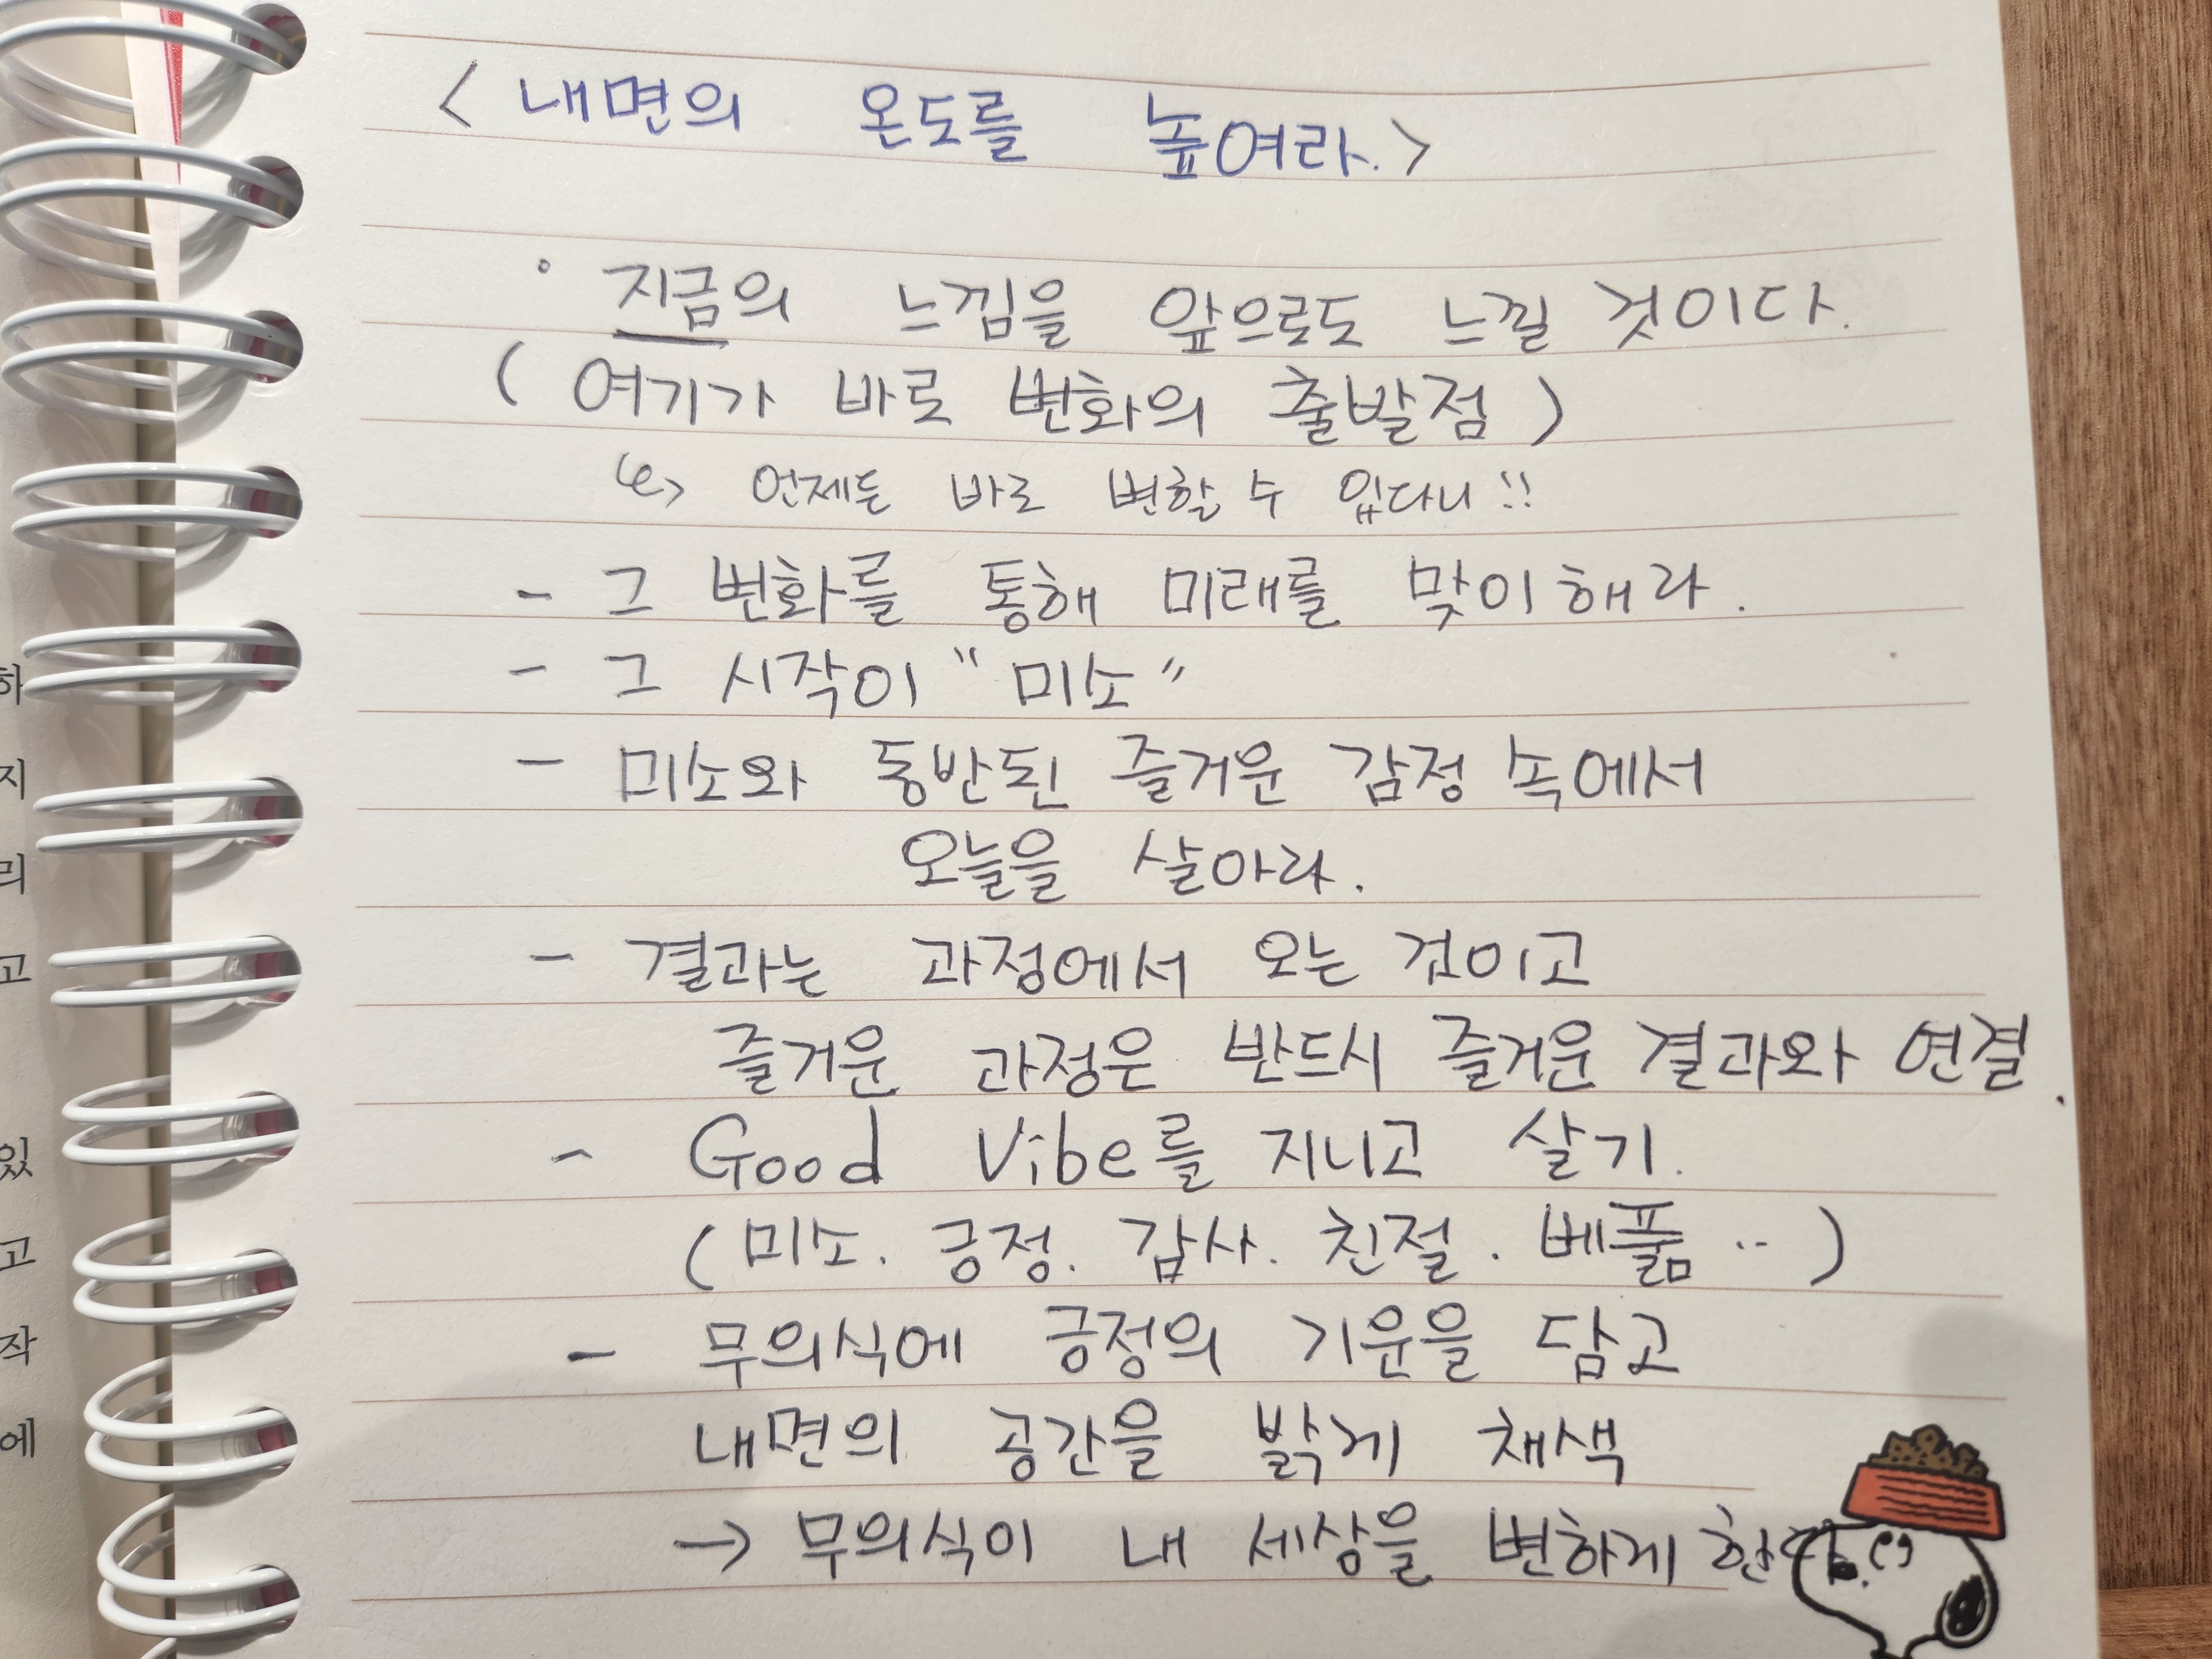 < 내면의 온도를 높여라. >
° 지금의 느낌을 앞으로도 느낄 것이다.
( 여기가 바로 변화의 출발점 )
언제든 바로 변할 수 있다니 !!
- 그 변화를 통해 미래를 맞이해라.
- 그 시작이 "미소"
- 미소와 동반된 즐거운 감정 속에서
오늘을 살아라.
- 결과는 과정에서 오는 것이고
즐거운 과정은 반드시 즐거운 결과와 연결.
- Good Vibe를 지니고 살기.
( 미소. 긍정. 감사. 친절. 베풂 ‥ )
- 무의식에 긍정의 기운을 담고
내면의 공간을 밝게 채색
→ 무의식이 내 세상을 변하게 한다.
하
지
리
고
있
고
작
에